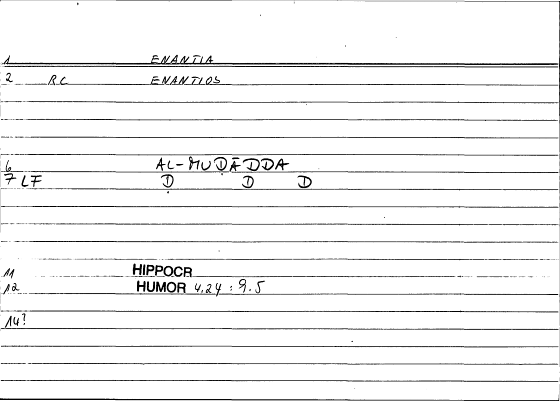 1 ENANTIA
2 RC ENANTIOS
6 AL-MUḌĀDDA
7 LF Ḍ D D
11 HIPPOCR
12 HUMOR 4,24 : 9.5
14?